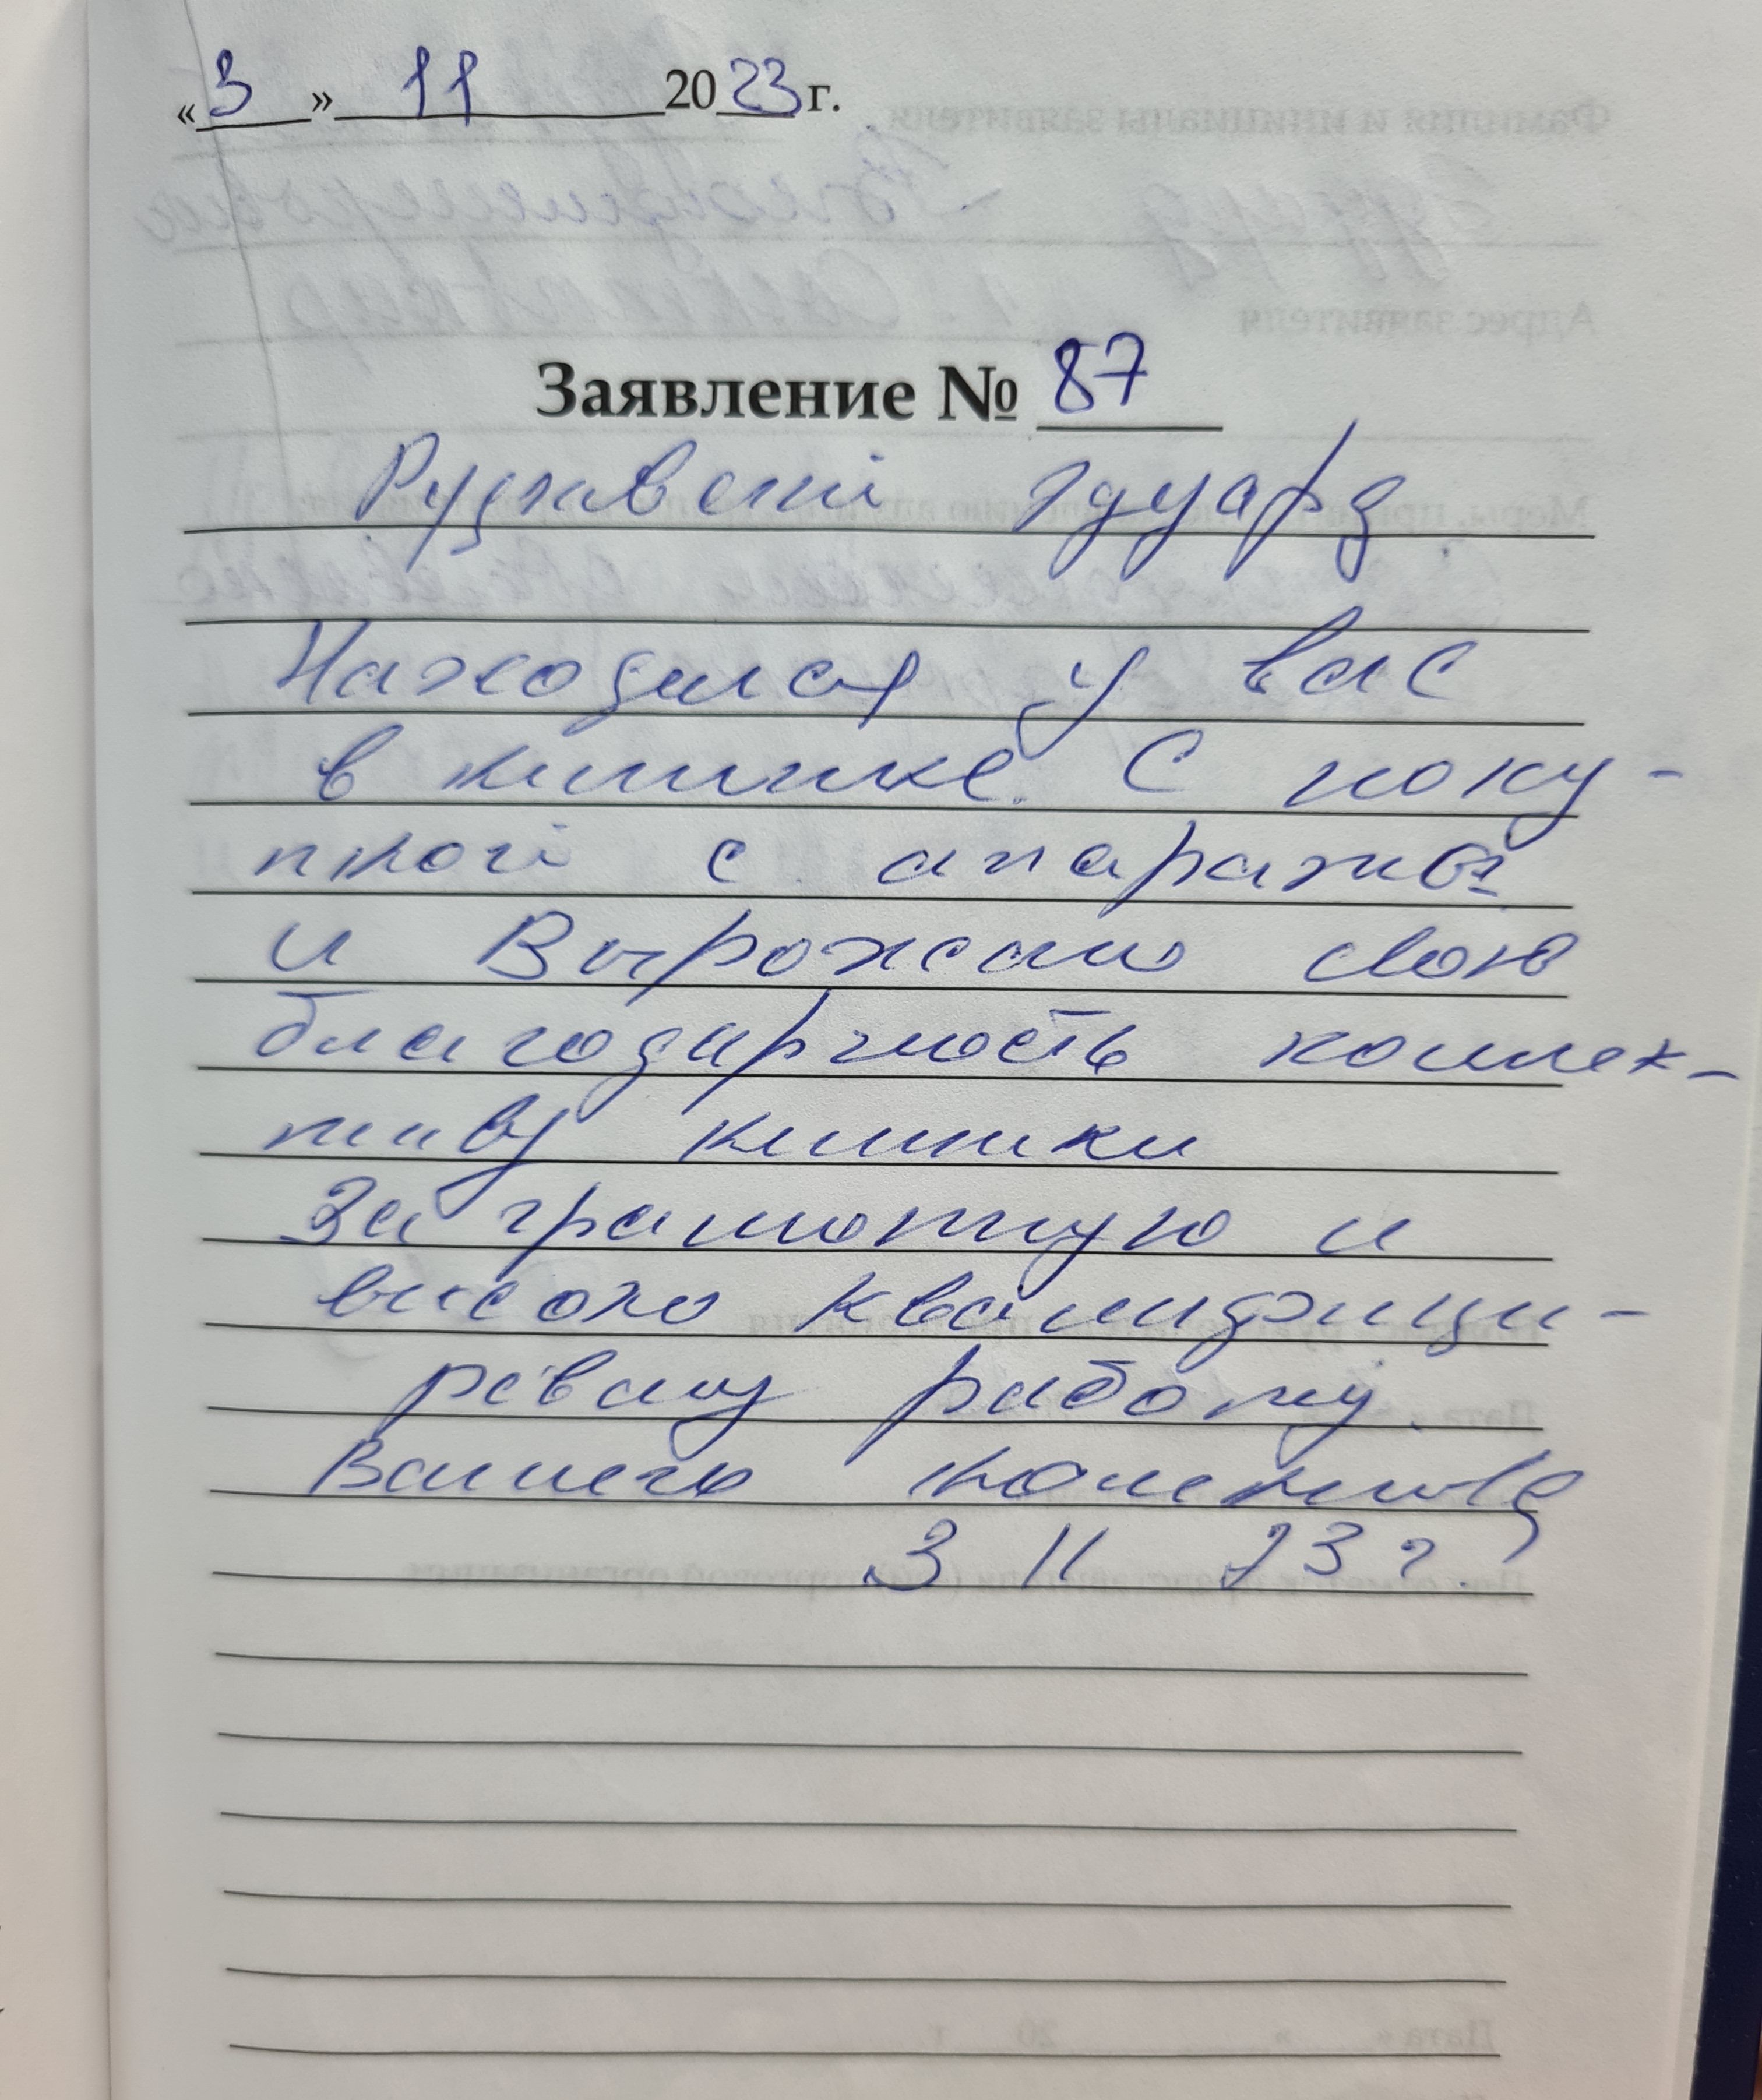 «3» 11 2023 г.
Заявление № 87
Эдуард
Находился у вас
в клинике. С поку-
пкой с апарата
и Вырожаю свою
благодарность коллек-
тиву клиники
За грамотную и
высоко квалифици-
ревану работу
Вашего колектива
3 11 23 г.